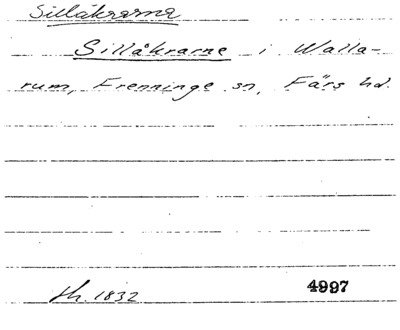 Sillåkrarna
Sillåkrarne i Walla-
rum, Frenninge sn, Färs hd.
th. 1832 4997